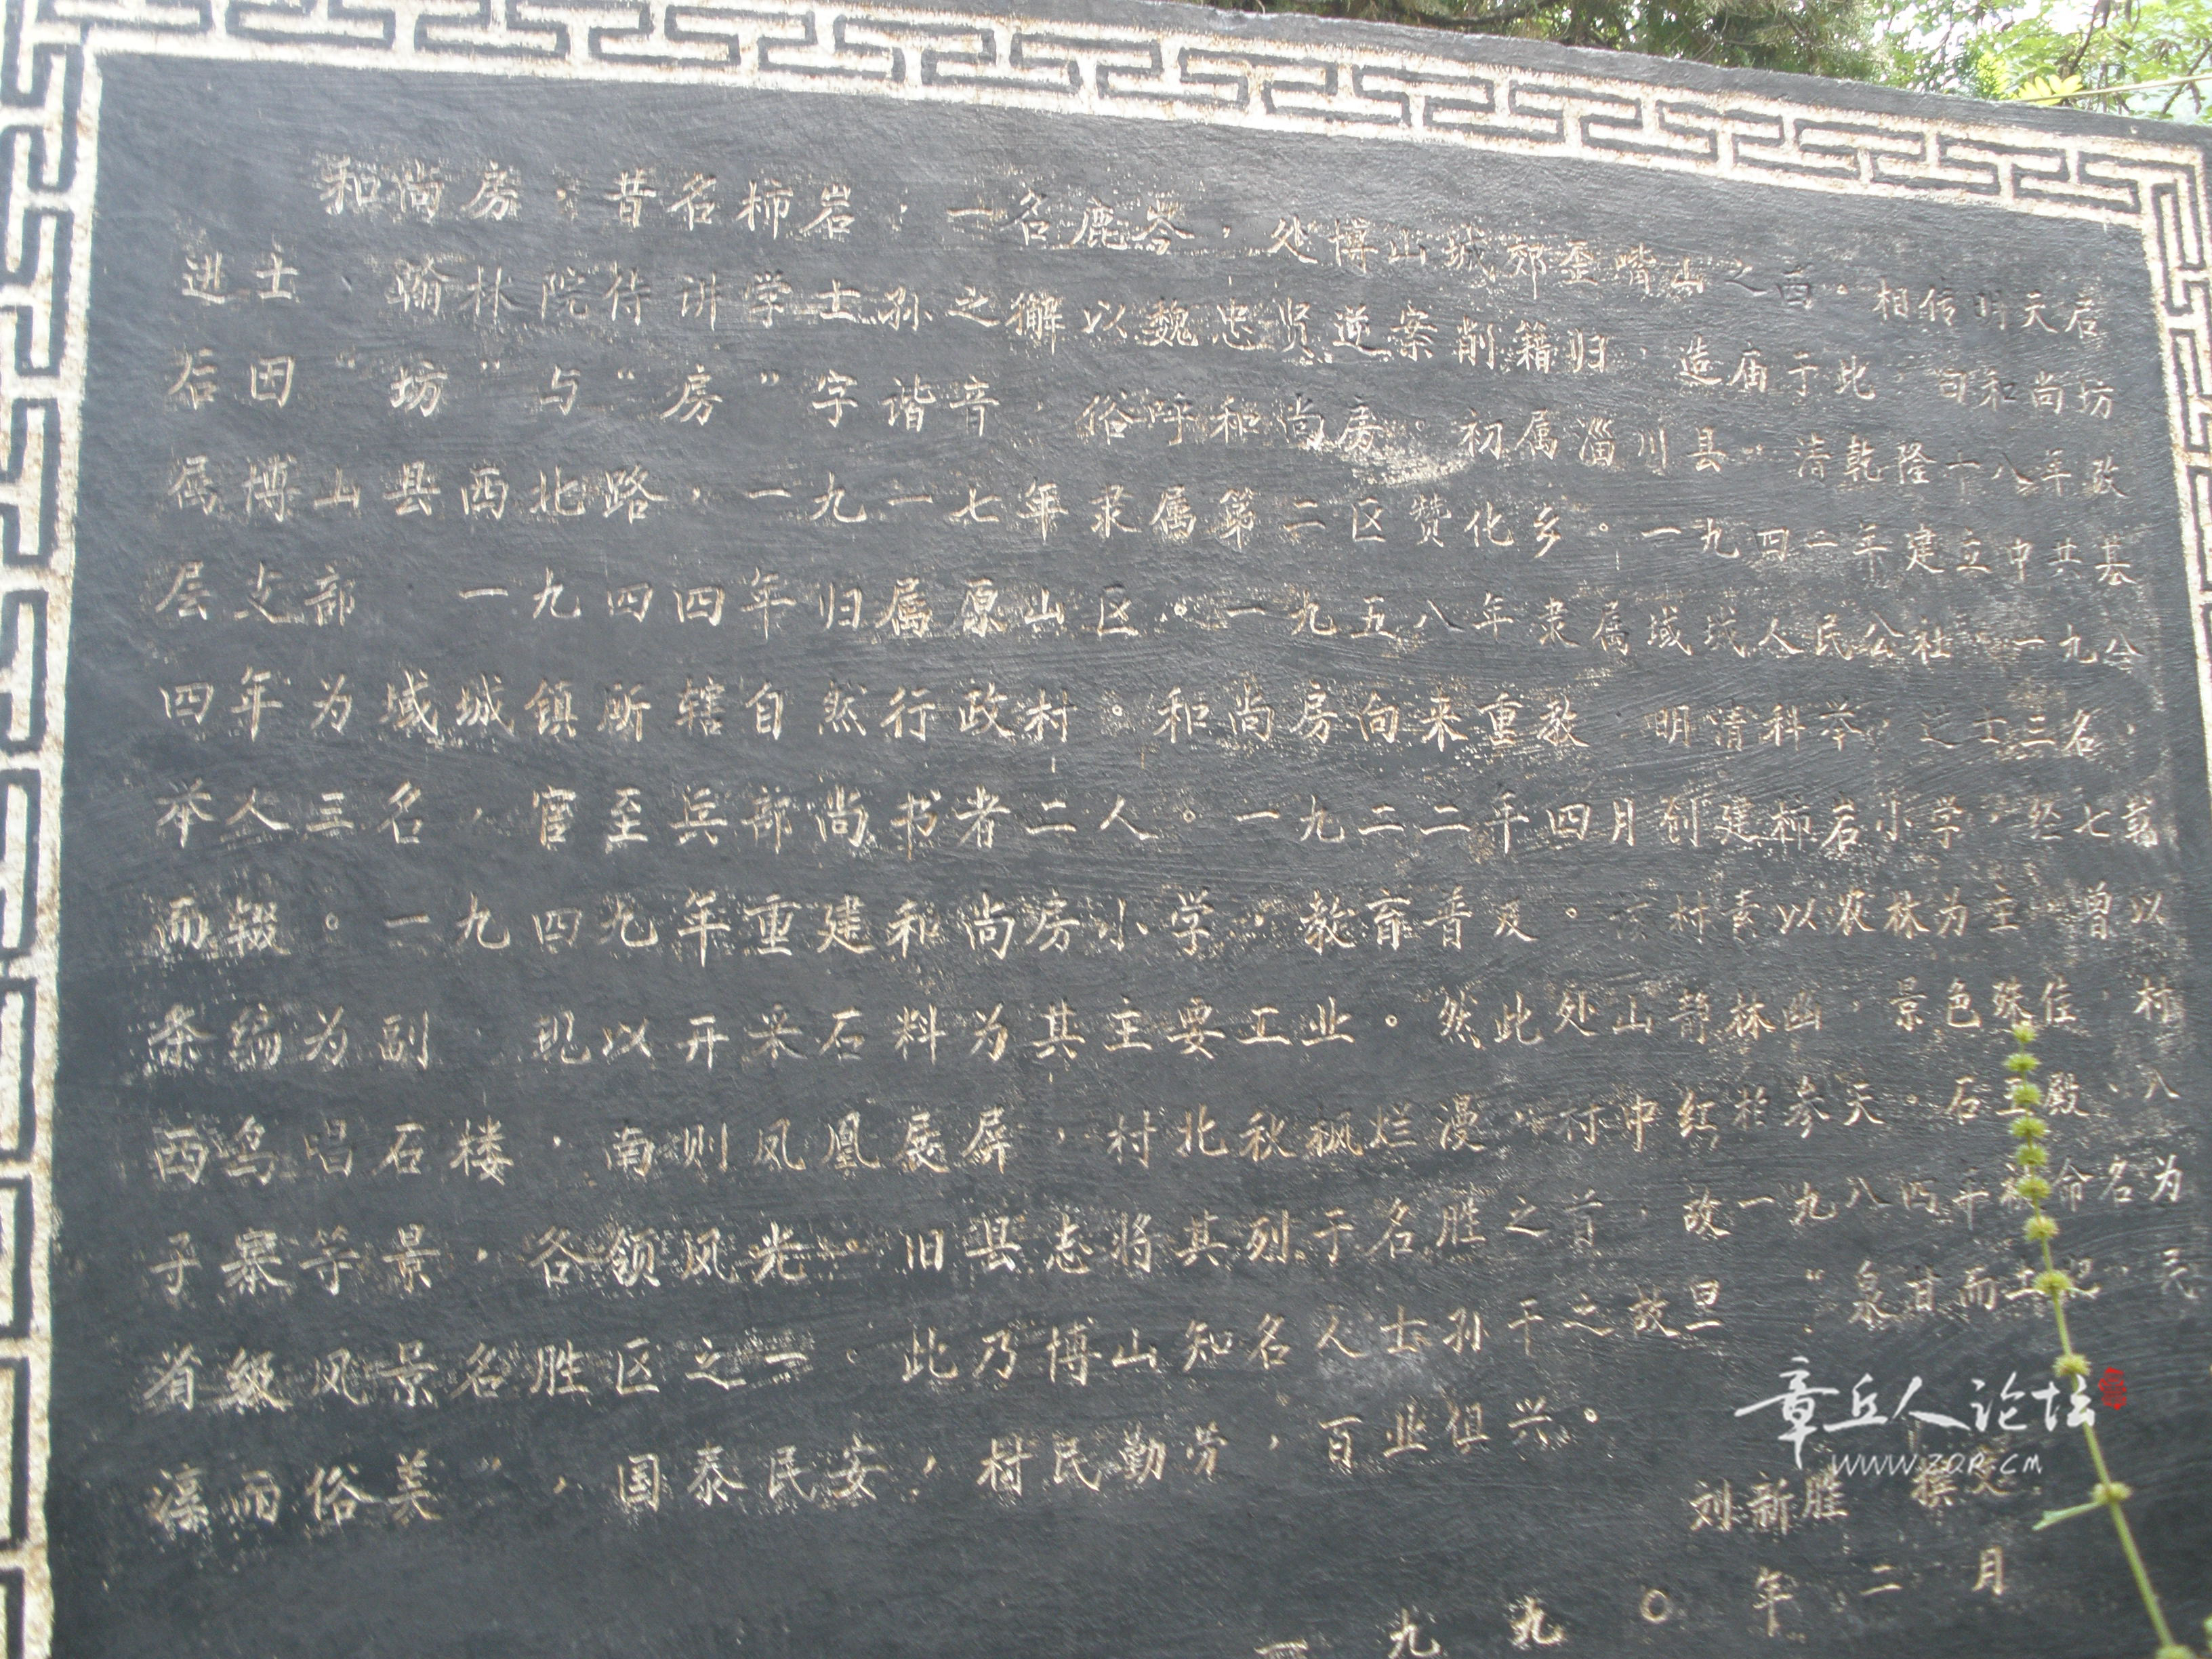 和尚房，昔名柿岩，一名鹿岑，处博山城郊歪嘴山之西。相传明天启
进士、翰林院侍讲学士孙之獬以魏忠贤逆案削籍归，造庙于此，曰和尚坊
后因“坊”与“房”字谐音，俗呼和尚房。初属淄川县，清乾隆十八年改
属博山县西北路，一九一七年隶属第二区赞化乡。一九四一年建立中共基
层支部 一九四四年归属原山区。一九五八年隶属域城人民公社 一九八
四年为域城镇所辖自然行政村。和尚房向来重教 明清科举，进士三名，
举人三名，官至兵部尚书者二人。一九二二年四月创建柿岩小学，然七载
而辍。一九四九年重建和尚房小学，教育普及。该村素以农林为主 曾以
条编为副 现以开采石料为其主要工业。然此处山静林幽，景色殊佳，村
西鸟唱石楼，南则凤凰展屏，村北秋枫烂漫，村中红桧参天。石王殿、八
子寨等景，各领风光。旧县志将其列于名胜之首，故一九八四年被命名为
省级风景名胜区之一。此乃博山知名人士孙干之故里 “泉甘而土肥，民
淳而俗美”，国泰民安，村民勤劳，百业俱兴。
刘新胜 撰文
一九九〇年二月
章丘人论坛
WWW.ZQR.CM